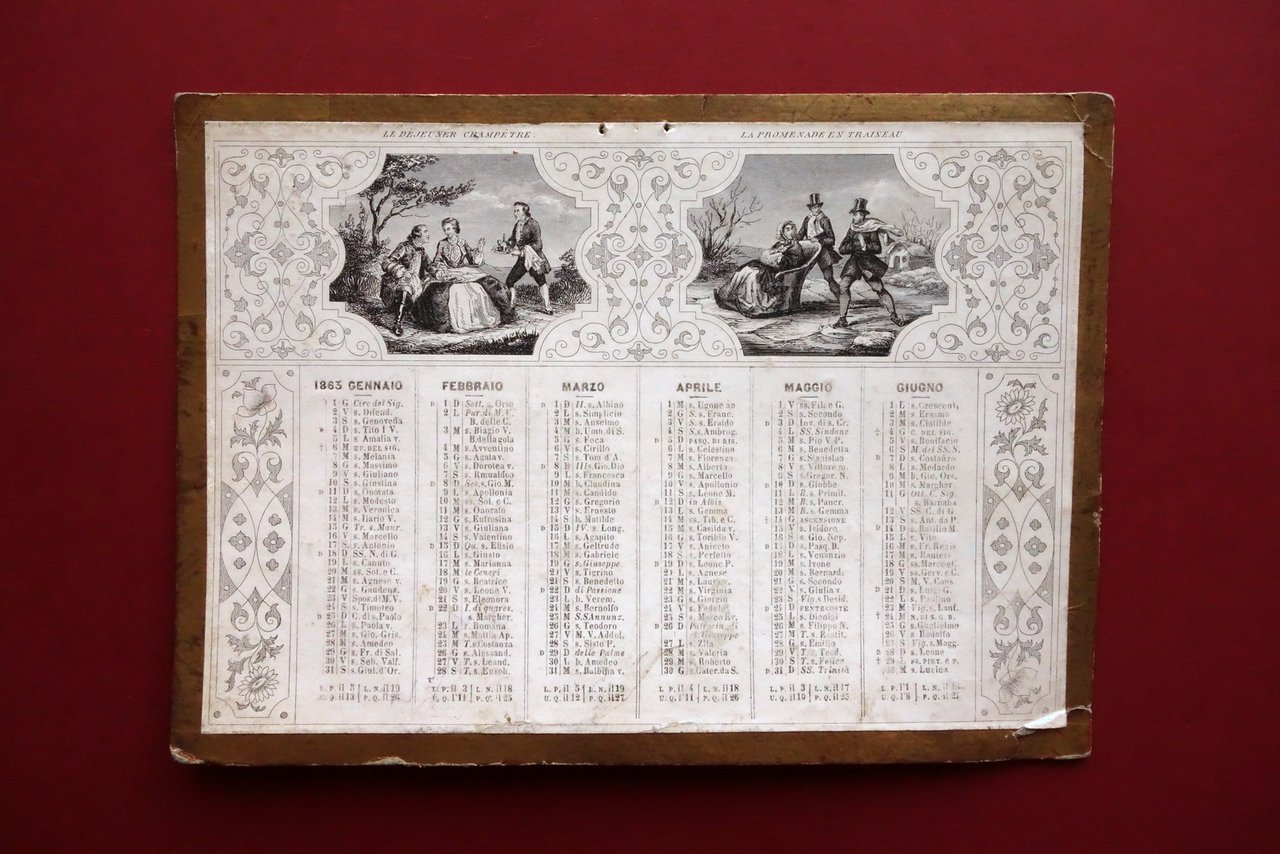 LE DÉJEUNER CHAMPÊTRE
LA PROMENADE EN TRAINEAU
1863 GENNAIO
1 G Circ del Sig.
2 V s. Difend.
3 S s. Genovella
4 D s. Tito I V.
5 L s Amalia v.
6 M EP. DEL SIG.
7 M s. Melania
8 G s. Massimo
9 V s. Giuliano
10 S s. Giustina
11 D s. Onorata
12 L s. Modesto
13 M s. Veronica
14 M s. Ilario V.
15 G Tr. s. Maur.
16 V s. Marcello
17 S s. Antonio
18 D SS. N. di G.
19 L s. Canuto
20 M ss. Seb. e C.
21 M s. Agnese v.
22 G s. Gaudenz.
23 V Spos. di M. V.
24 S s. Timoteo
25 D C. di s. Paolo
26 L s. Paola v.
27 M s. Gio. Gris.
28 M s. Amedeo
29 G s. Fr. di Sal.
30 V s. Seb. Valf.
31 S s. Giul. d'Or.
L. P. il 5 L. N. il 19
U. Q. il 13 P. Q. il 26
FEBBRAIO
1 D Sett. s. Orso
2 L Pur. di M. V.
B. delle C.
3 M s. Biagio V.
B. della gola
4 M s. Avventino
5 G s. Agata v.
6 V s. Dorotea v.
7 S s. Romualdo
8 D Ses. s. Gio. M.
9 L s. Apollonia
10 M ss. Sol. e C.
11 M s. Onorato
12 G s. Eufrosina
13 V s. Giuliana
14 S s. Valentino
15 D Qu. s. Efisio
16 L s. Giusto
17 M s. Marianna
18 M le Ceneri
19 G s. Beatrice
20 V s. Leone V.
21 S s. Eleonora
22 D I. di quares.
s. Margher.
23 L s. Romana
24 M s. Mattia Ap.
25 M T. s. Costanza
26 G s. Alessand.
27 V T. s. Leand.
28 S T. s. Euseb.
L. P. il 3 L. N. il 18
U. Q. l'11 P. Q. il 25
MARZO
1 D II. s. Albino
2 L s. Simplicio
3 M s. Anselmo
4 M b. Umb. di S.
5 G s. Foca
6 V s. Cirillo
7 S s. Tom. d'A.
8 D III. s. Gio. Dio
9 L s. Francesca
10 M b. Claudina
11 M s. Candido
12 G s. Gregorio
13 V s. Ernesto
14 S b. Matilde
15 D IV. s. Long.
16 L s. Agapito
17 M s. Geltrude
18 M s. Gabriele
19 G s. Giuseppe
20 V s. Tigrino
21 S s. Benedetto
22 D di Passione
23 L b. Verem.
24 M s. Bernolfo
25 M S.S. Annunz.
26 G s. Teodoro
27 V M. V. Addol.
28 S s. Sisto P.
29 D delle Palme
30 L b. Amedeo
31 M s. Balbina v.
L. P. il 5 L. N. il 19
U. Q. il 12 P. Q. il 27.
APRILE
1 M s. Ugone
2 G S. s. Franc.
3 V S. s. Eraldo
4 S S. s. Ambrog.
5 D PASQ. DI RIS.
6 L s. Celestino
7 M s. Fiorenzo
8 M s. Alberto
9 G s. Marcello
10 V s. Apollonio
11 S s. Leone M.
12 D in Albis
13 L s. Gemma
14 M ss. Tib. e C.
15 M s. Casilda v.
16 G s. Toribio V.
17 V s. Aniceto
18 S s. Perfetto
19 D s. Leone P.
20 L s. Agnese
21 M s.
22 M s. Virginia
23 G s. Giorgio
24 V s. Fedele
25 S s. Marco Ev.
26 D
s. Giuseppe
27 L s. Zita
28 M s. Valeria
29 M s. Roberto
30 G s. Cater. da S.
L. P. il 4 L. N. il 18
U. Q. l'11 P. Q. il 26
MAGGIO
1 V ss. Fil. e G.
2 S s. Secondo
3 D Inv. di s. Cr.
4 L SS. Sindone
5 M s. Pio V P.
6 M s. Benedetta
7 G s. Stanislao
8 V s. Vittore m.
9 S s. Gregor. N.
10 D s. Giobbe
11 L R. s. Primit.
12 M R. s. Pancr.
13 M R. s. Gemma
14 G ASCENSIONE
15 V s. Isidoro
16 S s. Gio. Nep.
17 D s. Pasq. B.
18 L s. Venanzio
19 M s. Ivone
20 M s. Bernard.
21 G s. Secondo
22 V s. Giulia v
23 S Vig. s Desid.
24 D PENTECOSTE
25 L s. Dionigi
26 M s. Filippo N.
27 M T. s. Restit.
28 G s. Emilio
29 V T. s. Teod.
30 S T. s. Felice
31 D SS. Trinità
L. P. il 3 L. N. il 17
U. Q. il 10 P. Q. il 25
GIUGNO
1 L s. Crescent.
2 M s. Erasmo
3 M s. Clotilde
4 G C. DEL SIG.
5 V s. Bonifacio
6 S M. del SS. S.
7 D s. Costanzo
8 L s. Medardo
9 M b. Gio. Ors.
10 M s. Margher
11 G Ott. C. Sig.
s. Barnaba
12 V SS. C. di G.
13 S s. Ant. da P.
14 D s. Basilio M.
15 L s. Vito
16 M s. Fr. Regis
17 M s. Ranieri
18 G ss. Marco e C.
19 V ss. Gerv. e C.
20 S M. V. Cons.
21 D s. Luigi G.
22 L s. Paolino
23 M Vig. s. Lanf.
24 M N. DI S. G. B.
25 G s. Guglielmo
26 V s. Rodolfo
27 S Vig. s. Magg.
28 D s. Leone
29 L ss. PIET. e P.
30 M s. Lucina
L. P. l'1 L. N. il
U. Q. l'8 P. Q. il